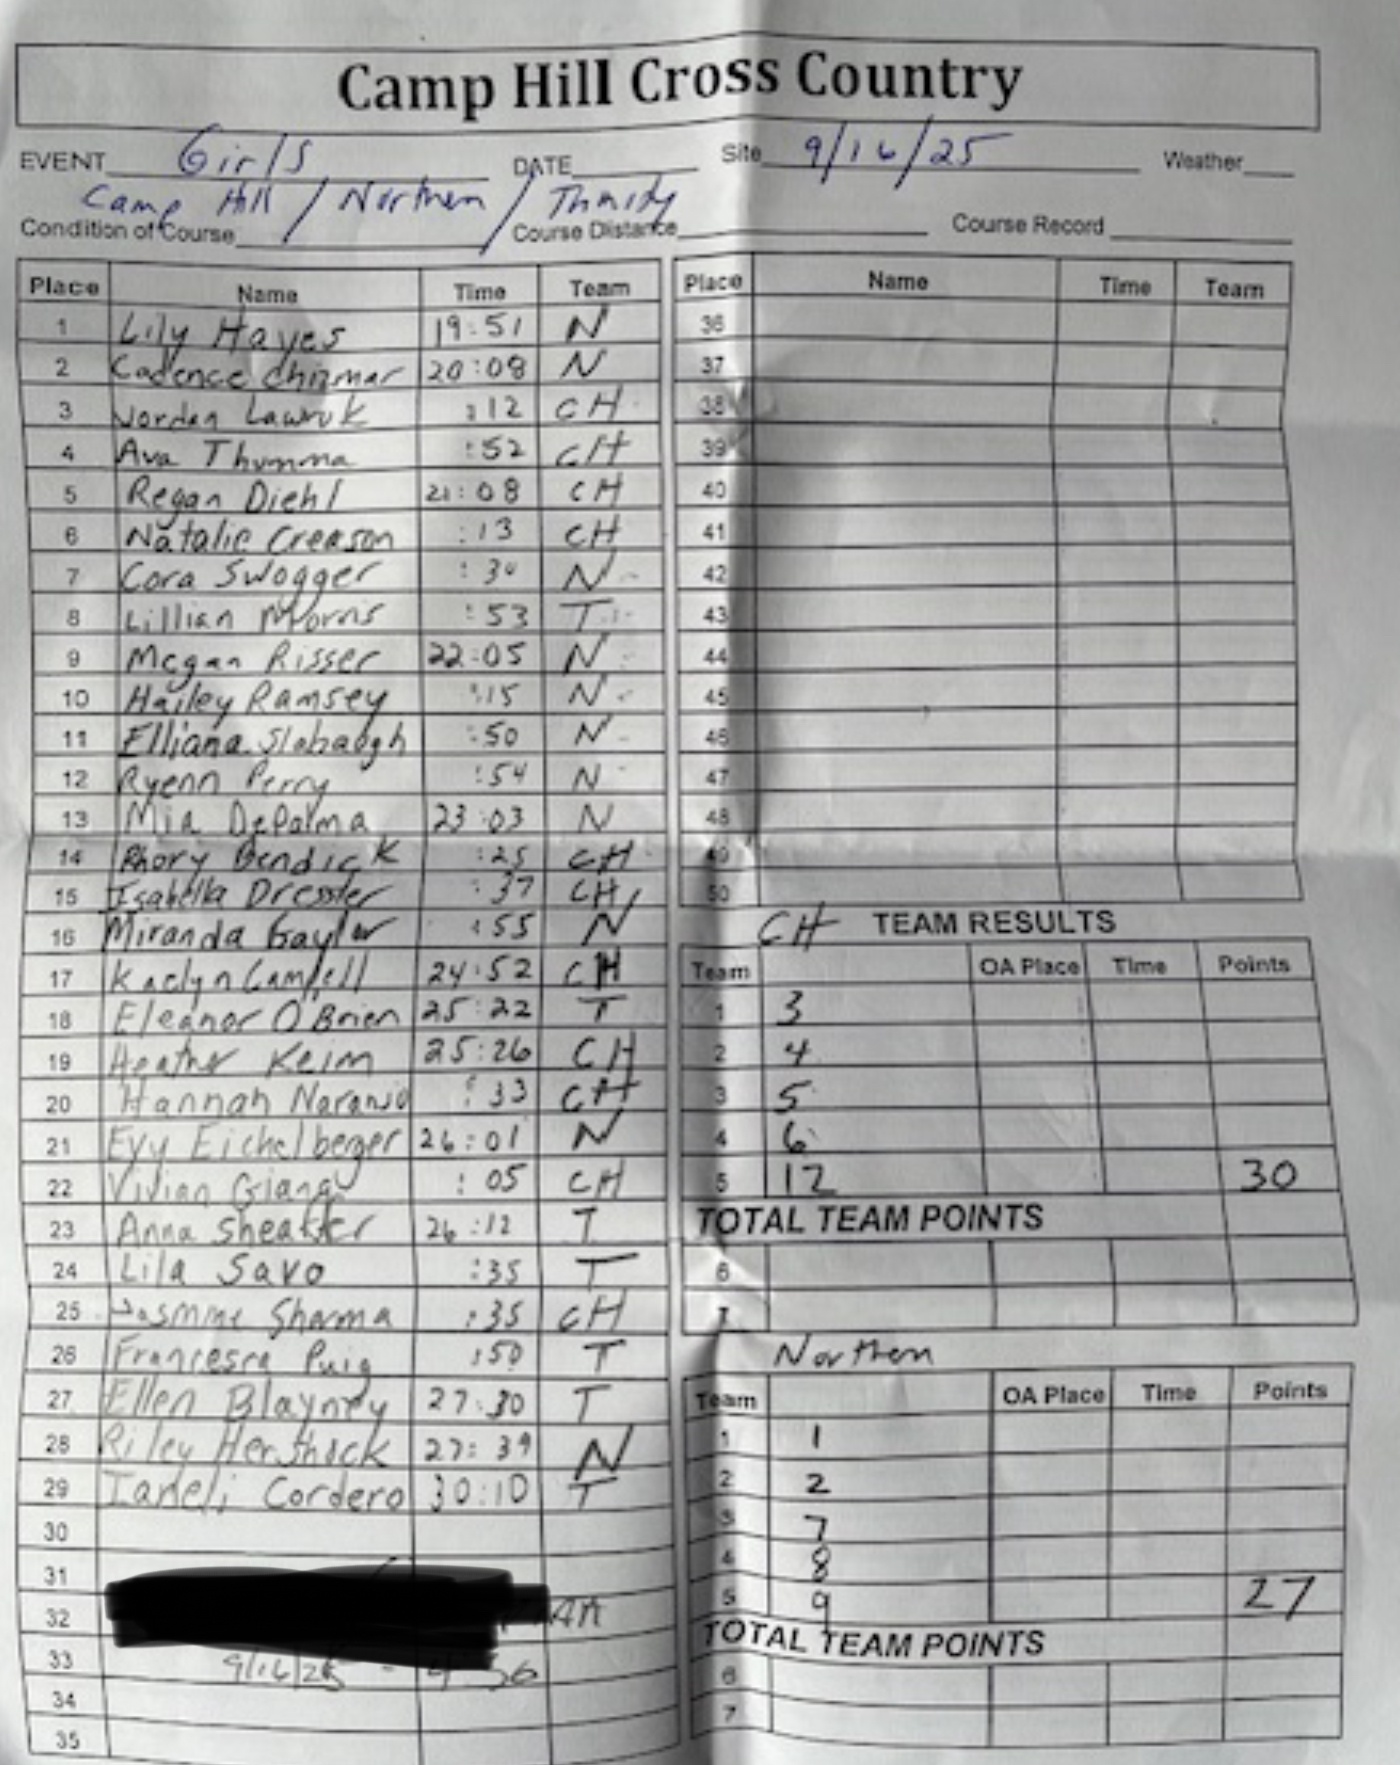 Camp Hill Cross Country
EVENT Girls DATE Site 9/16/25 Weather
Camp Hill / Northern / Trinity
Condition of Course Course Distance Course Record
Place Name Time Team
1 Lily Hayes 19:51 N
2 Cadence Chizmar 20:08 N
3 Jordan Lawruk :12 CH
4 Ava Thumma :52 CH
5 Regan Diehl 21:08 CH
6 Natalie Creason :13 CH
7 Cora Swogger :30 N
8 Lillian Morris :53 T
9 Megan Risser 22:05 N
10 Hailey Ramsey :15 N
11 Elliana Slabaugh :50 N
12 Ryenn Perry :54 N
13 Mia DePalma 23:03 N
14 Rhory Bendick :25 CH
15 Isabella Dressler :37 CH
16 Miranda Gayler :55 N
17 Kaelyn 24:52 CH
18 Eleanor O'Brien 25:22 T
19 Heather Keim 25:26 CH
20 Hannah Naranjo :33 CH
21 Evy Eichelberger 26:01 N
22 Vivian Giang :05 CH
23 Anna Sheaffer 26:12 T
24 Lila Savo :35 T
25 Jasmine Sharma :35 CH
26 Francesca Puig :50 T
27 Ellen Blayney 27:30 T
28 Riley Hershock 27:39 N
29 Ianeli Cordero 30:10 T
30
31
32
33 9/16/25 - 4 56
34
35
Place Name Time Team
36
37
38
39
40
41
42
43
44
45
46
47
48
49
50
CH TEAM RESULTS
Team OA Place Time Points
1 3
2 4
3 5
4 6
5 12 30
TOTAL TEAM POINTS
6
7
Northern
Team OA Place Time Points
1 1
2 2
3 7
4 8
5 9 27
TOTAL TEAM POINTS
6
7